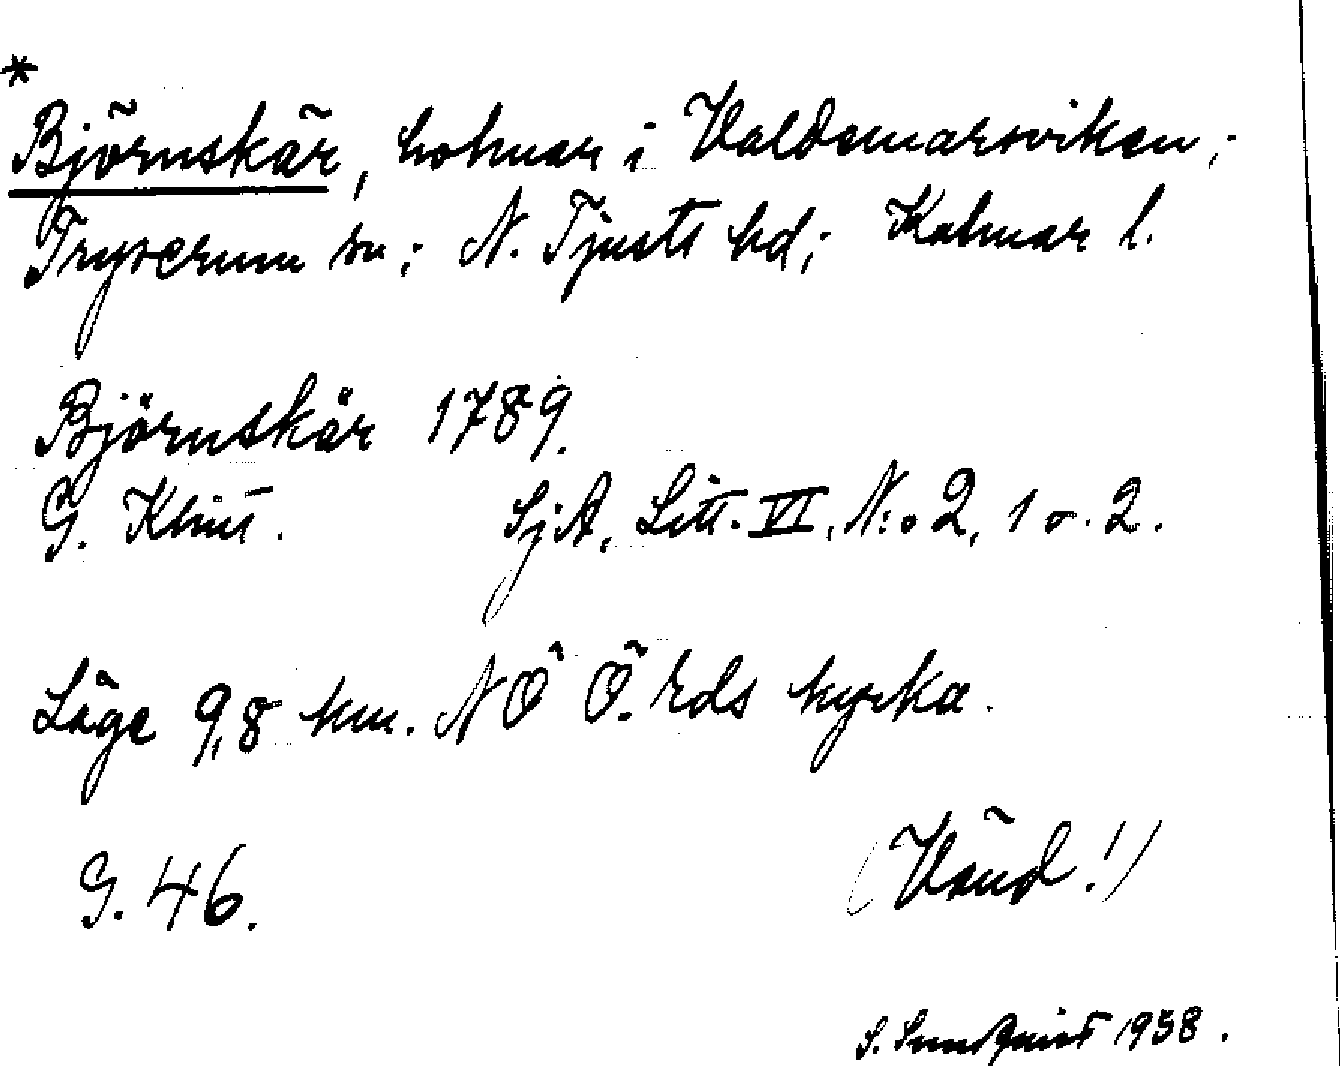 *
Björnskär, holmar i Valdemarsviken,
Tryserum sn; N. Tjusts hd; Kalmar l.
Björnskär 1789.
G. Klint. SjA, Litt. VI, N:o 2, 1 o. 2.
Läge 9,8 km. NÖ Ö. Eds kyrka.
G. 46. (Vänd!)
S. Sundquist 1938.